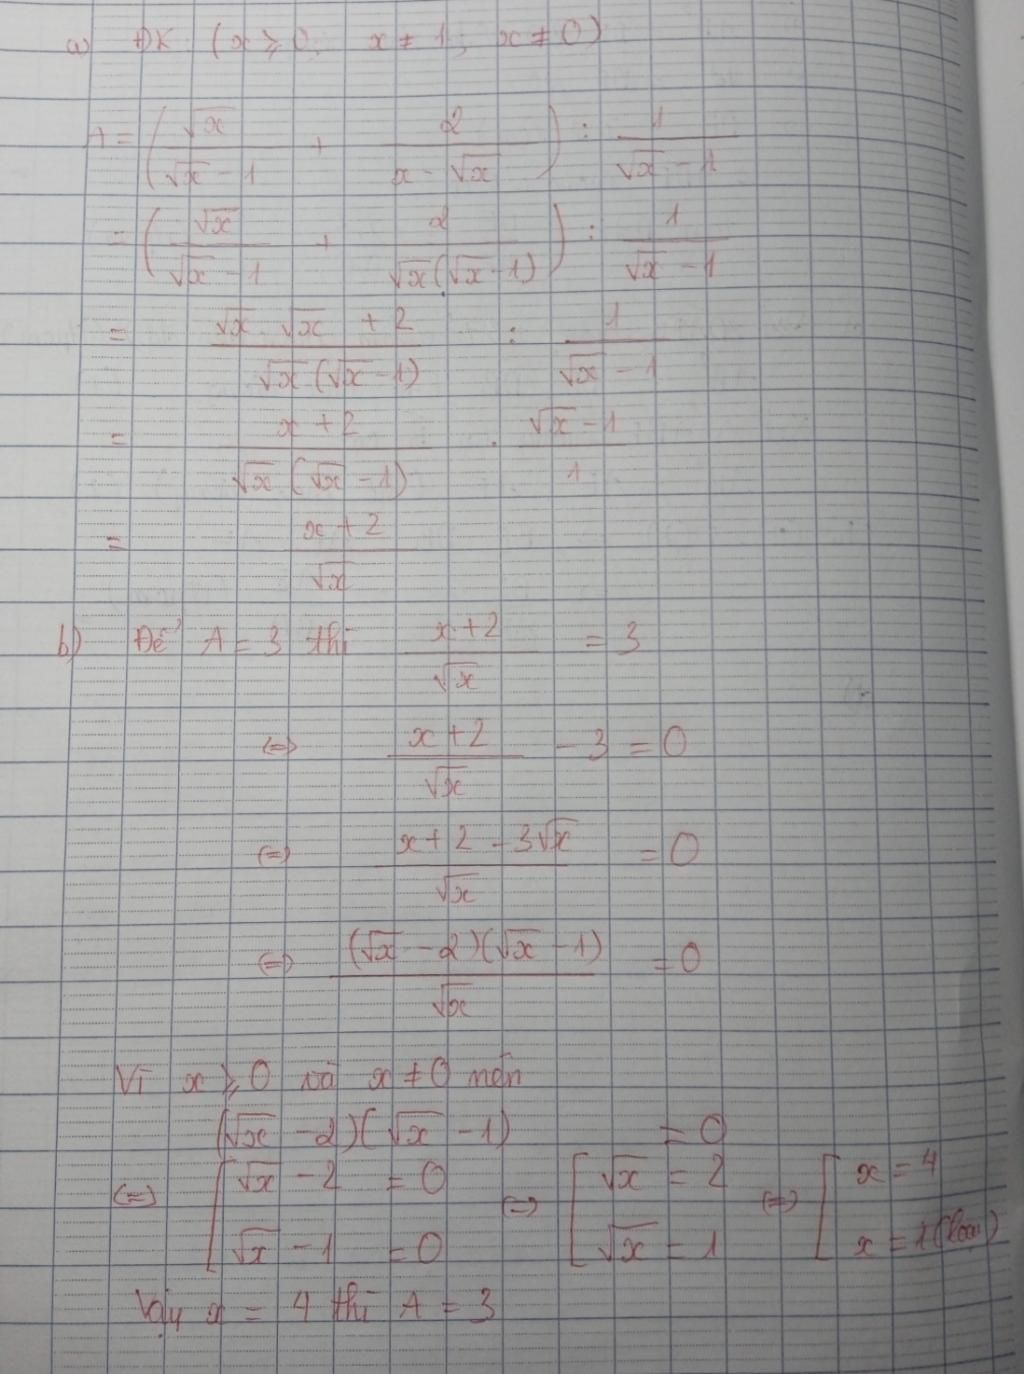 a) ĐK (x ≥ 0; x ≠ 1; x ≠ 0)
A = (√x/(√x - 1) + 2/(x - √x)) : 1/(√x - 1)
= (√x/(√x - 1) + 2/(√x(√x - 1))) : 1/(√x - 1)
= (√x . √x + 2)/(√x(√x - 1)) : 1/(√x - 1)
= (x + 2)/(√x(√x - 1)) . (√x - 1)/1
= (x + 2)/√x
b) Để A = 3 thì (x + 2)/√x = 3
(=) (x + 2)/√x - 3 = 0
(=) (x + 2 - 3√x)/√x = 0
(=) (√x - 2)(√x - 1)/√x = 0
Vì x ≥ 0 và x ≠ 0 nên
(√x - 2)(√x - 1) = 0
(=) [√x - 2 = 0 (=) [√x = 2 (=) [x = 4
√x - 1 = 0 √x = 1 x = 1 (loại)
Vậy x = 4 thì A = 3